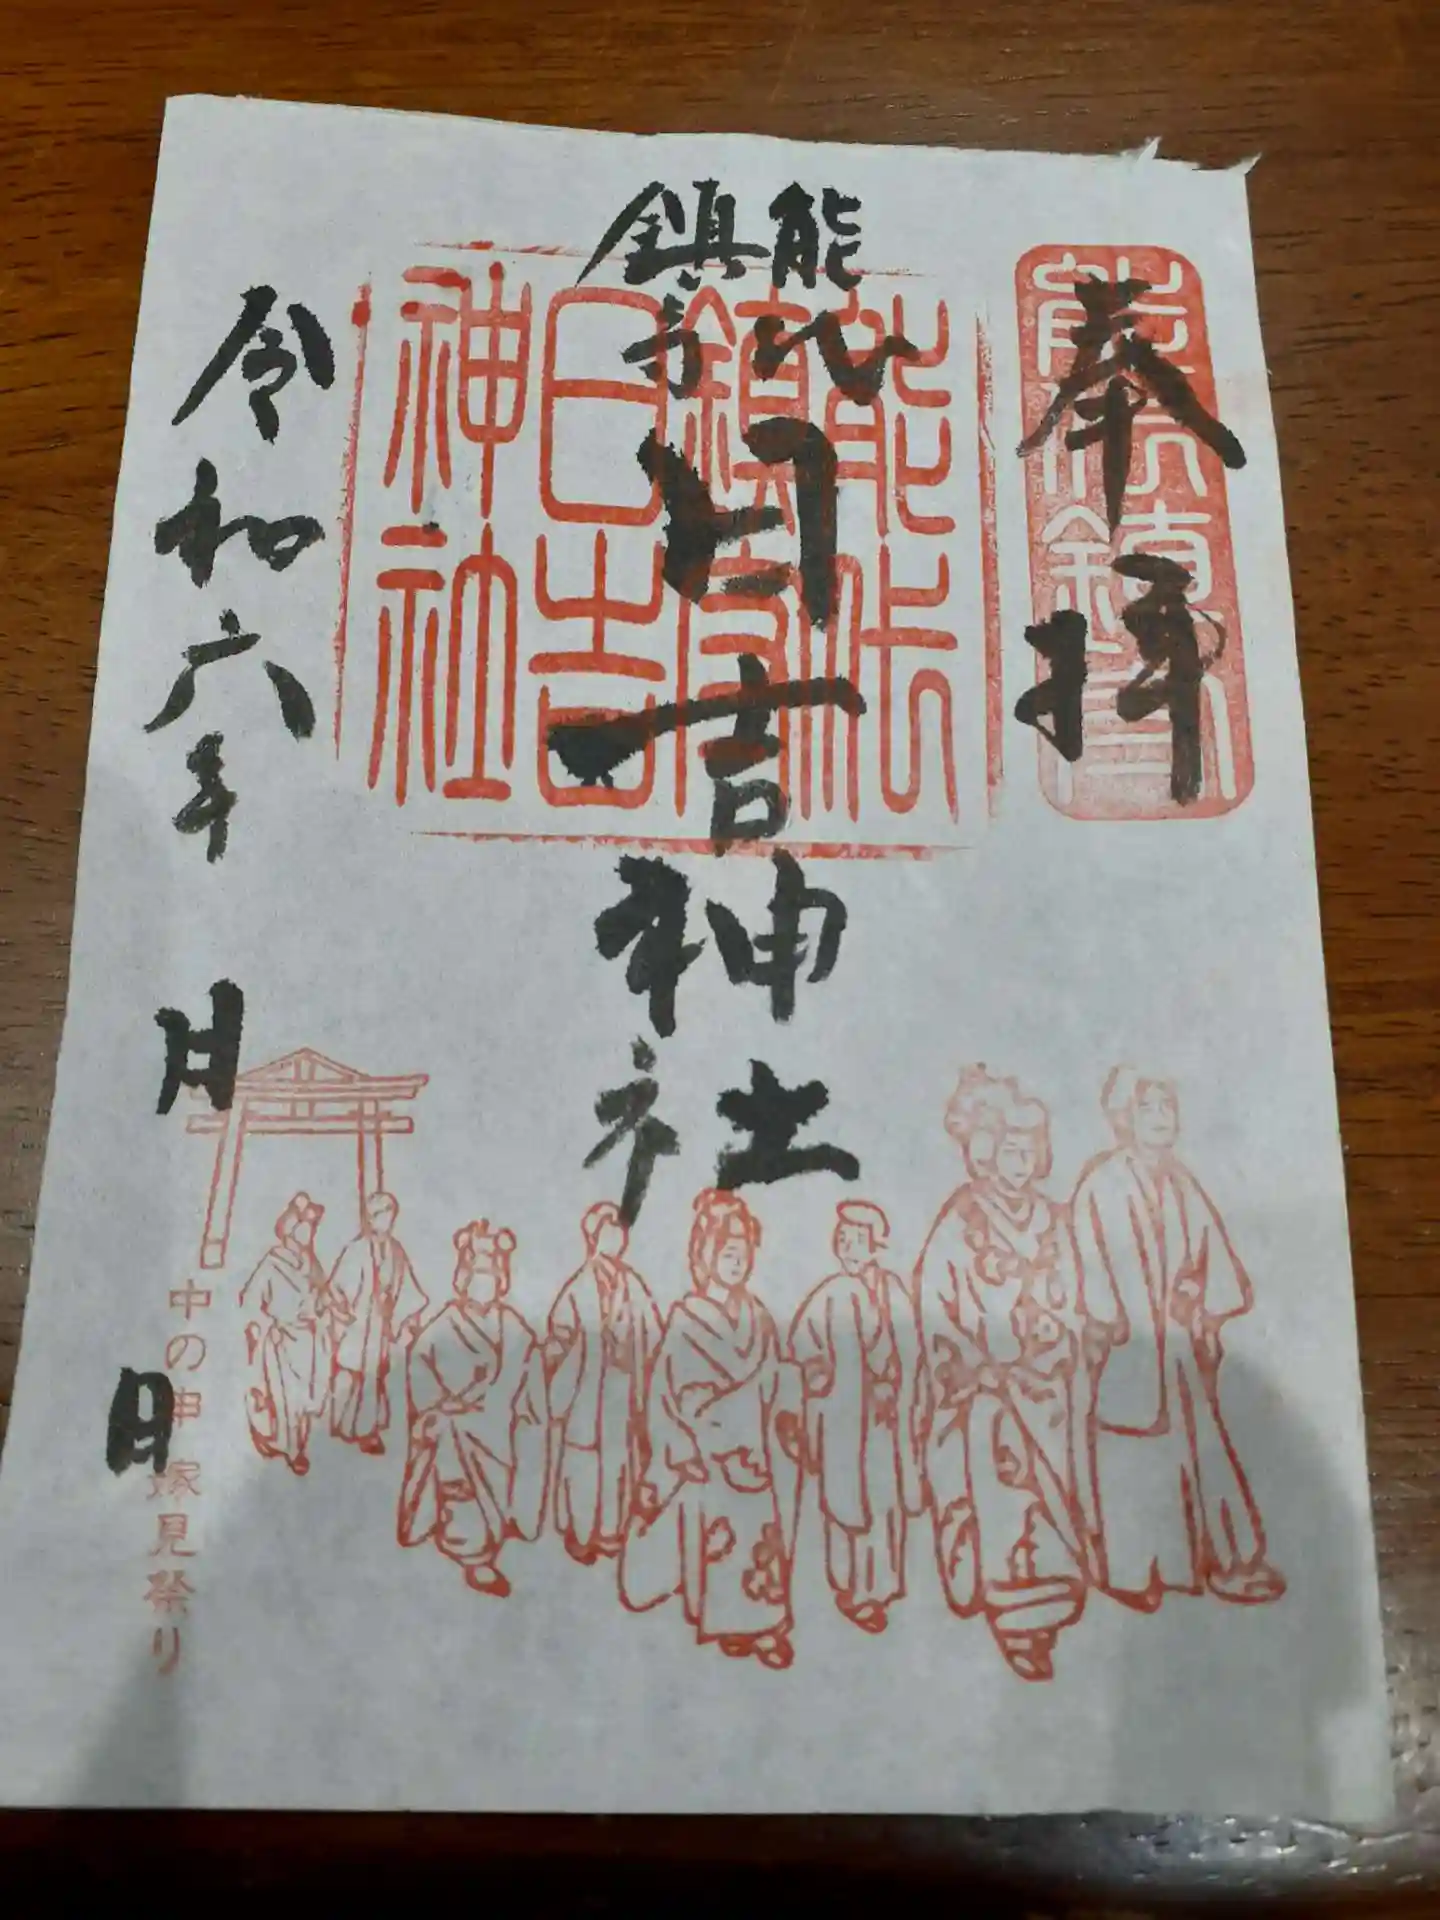 奉拝
能代
鎮守
日吉神社
能代
鎮守
日吉
神社
能代鎮守
令和六年 月 日
中の申 嫁見祭り